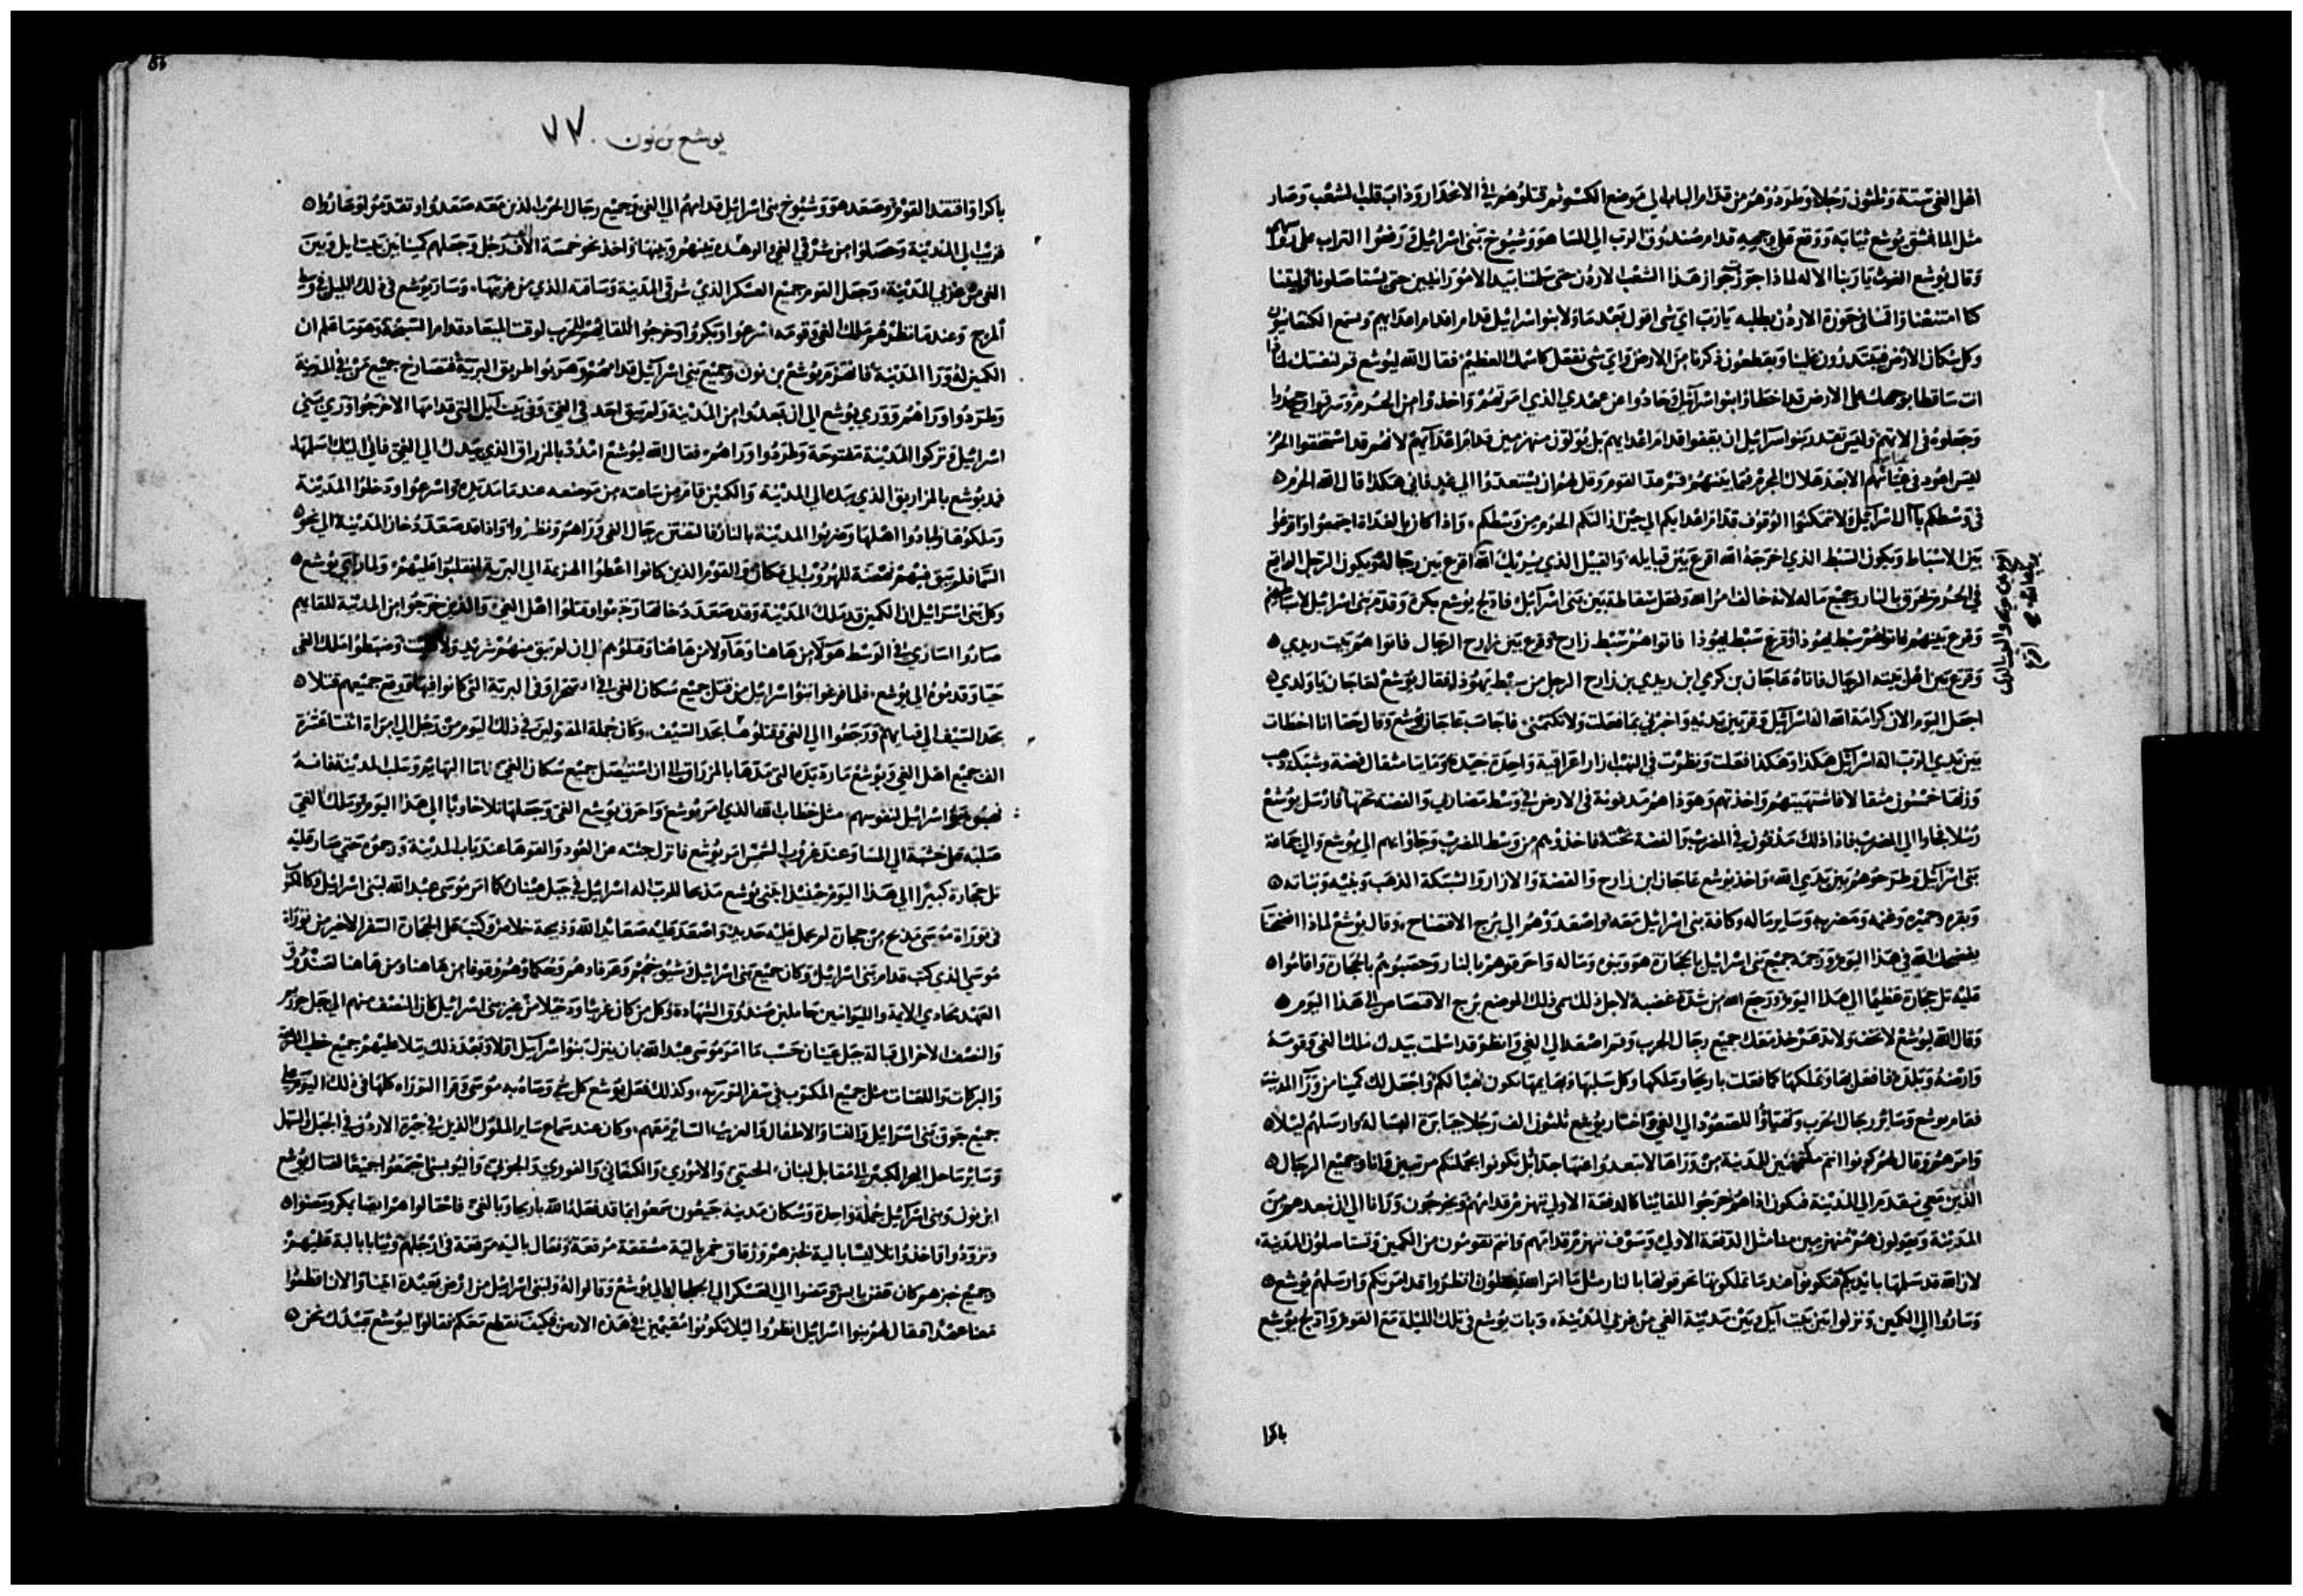 اهل الغي ستة وثلثون رجلا وطردوهم من قدام الباب الي موضع الكسر وقتلوهم في الانحدار وذاب قلب الشعب وصار
مثل الما فشق يوشع ثيابه ووقع علي وجهه قدام صندوق الرب الي المسا هو وشيوخ بني اسرائيل ورفعوا التراب علي
وقال يوشع يا ربنا الاله لماذا جوزت هذا الشعب الاردن حتي تسلمنا بيد الامورانيين حتي
يا رب اي شي اقول بعدما ولا بنوا اسرائيل قدام اعدايهم ويسمع الكنعانيون
وكل سكان الارض ويقطعون ذكرنا من الارض واي شي تفعل لاسمك العظيم فقال الله ليوشع قم لنفسك لماذا
انت ساقط بوجهك علي الارض قد اخطاوا بنوا اسرائيل وحادوا عن عهدي الذي امرتهم واخذوا من الحرم وسرقوا وجحدوا
وليس تقدر بنوا اسرائيل ان يقفوا قدام اعدايهم بل يولون منهزمين قدام اعدايهم لانهم قد استحقوا الحرم
ليس اعود الا بعد هلاك المجرم فيما بينهم قم القوم وقل لهم ان يستعدوا الي غد فاني هكذا قال الله الحرم
في وسطكم يا آل اسرائيل ولا تمكنوا الوقوف قدام اعدايكم الي حين ازالتكم الحرم من وسطكم واذا كان بالغداة اجتمعوا واقرعوا
بين الاسباط ويكون السبط الذي اخرجه الله اقرع بين قبايله والقبيل الذي الله اقرع بين رجاله ويكون الرجل الواقع
في الحرم يحرق بالنار وجميع ماله لانه خالف امر الله وفعل بين بني اسرائيل فادلج يوشع بكرة وقدم بني اسرائيل
وقرع بينهم سبط يهوذا وقرع سبط يهوذا فاتوا هم سبط زارح وقرع بين زارح الرجال فاتوا هم بيت زبدي
وقرع بين اهل بيته الرجال فاتاه عاجان بن كرمي ابن زبدي بن زارح الرجل من سبط يهوذا فقال يوشع لعاجان يا ولدي
اجعل اليوم الان كرامة الله اله اسرائيل وقر بين يديه واخبرني بما فعلت ولا تكتمني فاجاب عاجان يوشع وقال حقا انا اخطات
بين يدي الرب اله اسرائيل هكذا وهكذا فعلت ونظرت في النهب ازار عراقية واحدة جيدة ومايتا مثقال فضة وشبكة ذهب
وزنها خمسون مثقالا فاشتهيتهم واخذتهم وهوذا هم مدفونة في الارض في وسط مضاربي والفضة تحتها فارسل يوشع
رسلا فجاوا الي المضرب فاذا ذلك مدفون في المضرب والفضة تحته فاخذوهم من وسط المضرب وجاوا بهم الي يوشع والي جماعة
بني اسرائيل وطرحوهم بين يدي الله واخذ يوشع عاجان ابن زارح والفضة والازار والشبكة الذهب وبنيه وبناته
وبقره وحميره وغنمه ومضربه وساير ماله وكافة بني اسرائيل معه واصعدوهم الي برج الافتضاح وقال يوشع لماذا افضحتنا
يفضحك الله في هذا اليوم ورجمه جميع بني اسرائيل بالحجارة هو وبنوه وماله واحرقوهم بالنار وحصبوهم بالحجارة واقاموا
عليه تل حجارة عظيما الي هذا اليوم ورجع الله من شدة غضبه لاجل ذلك سمي ذلك الموضع برج الافتضاح الي هذا اليوم
وقال الله ليوشع لا تخف ولا تفزع خذ معك جميع رجال الحرب وقم اصعد الي الغي وانظر قد اسلمت بيدك ملك الغي وقومه
وارضه وبلده فافعل بها وبملكها كما فعلت باريحا وملكها وكل سلبها وبهايمها يكون نهبا لكم واجعل لك كمينا من ورا المدينة
فقام يوشع وساير رجال الحرب وتهياوا للصعود الي الغي واختار يوشع ثلثون الف رجلا جبابرة وارسلهم ليلا
وامرهم وقال لهم كونوا انتم مكمنين للمدينة من وراها لا تبعدوا عنها جدا بل تكونوا بجملتكم مرتبين وانا وجميع الرجال
الذين معي نتقدم الي المدينة فيكون اذا هم خرجوا للقاينا كالدفعة الاولي ننهزم قدامهم ويخرجون ورانا الي ان نبعدهم من
المدينة ويقولون هم منهزمين منا مثل الدفعة الاولي وسوف ننهزم قدامهم وانتم تقومون من الكمين وتستاصلون المدينة
لان الله قد سلمها بايديكم فيكون عندما تملكونها تحرقونها بالنار مثل ما امر الله تفعلون انظروا قد امرتكم وارسلهم يوشع
وساروا الي الكمين ونزلوا بين بيت آيل وبين مدينة الغي من غربي المدينة وبات يوشع في تلك الليلة مع القوم وادلج يوشع
باكرا
يوشع بن نون ٧٧
باكرا وافتقد القوم وصعد هو وشيوخ بني اسرائيل قدامهم الي الغي وجميع رجال الحرب الذين معه صعدوا وتقدموا وصاروا
قريب الي المدينة وحصلوا من شرقي الغي والوهدة بينهم وبينها واخذ نحو خمسة الاف رجل وجعلهم كمينا بين بيت ايل وبين
الغي من غربي المدينة وجعل القوم جميع العسكر الذي شرقي المدينة وساقته الذي من غربها وسار يوشع في ذلك الليل في وسط
المرج وعندما نظرهم ملك الغي وقومه اسرعوا وبكروا وخرجوا للقايهم للحرب لوقت الميعاد قدام وهو ما علم ان
الكمين له ورا المدينة فانهزم يوشع بن نون وجميع بني اسرائيل قدامهم وهربوا طريق البرية فتصارخ جميع من في المدينة
وطردوا وراهم ودري يوشع الي ان بعدوا من المدينة ولم يبق احد في الغي وفي بيت آيل التي قدامها الا خرجوا ورا بني
اسرائيل وتركوا المدينة مفتوحة وطردوا وراهم فقال الله ليوشع امدد بالمزراق الذي بيدك الي الغي فاني اليك اسلمها
فمد يوشع بالمزاريق الذي بيده الي المدينة والكمين قام من ساعته من موضعه عندما مد يده واسرعوا ودخلوا المدينة
وملكوها وابادوا اهلها وضربوا المدينة بالنار فالتفتن رجال الغي وراهم ونظروا واذا قد صعد دخان المدينة الي نحو
السما فلم يبق فيهم نهضة للهروب القوم الذين كانوا اعطوا الهزيمة الي البرية انقلبوا عليهم ولما راي يوشع
وكل بني اسرائيل ان الكمين قد ملك المدينة وقد صعد دخانها رجعوا وقتلوا اهل الغي والذين خرجوا من المدينة للقايهم
صاروا في الوسط هولاء من هاهنا وهاولا من هاهنا وقتلوهم الي ان لم يبق منهم شريد ولا وضبطوا ملك الغي
حيا وقدموه الي يوشع فلما فرغوا بنوا اسرائيل من قتل جميع سكان الغي في الصحرا وفي البرية التي كانوا فيها ووقع جميعهم قتلا
بحد السيف الي فنايهم ورجعوا الي الغي وقتلوها بحد السيف وكان جملة المقتولين في ذلك اليوم من رجل الي امراة اثنتا عشرة
الف جميع اهل الغي ويوشع ما رد يده التي مدها بالمزراق الي ان استيصل جميع سكان الغي البهايم وسلب المدينة
اسرائيل لنفوسهم مثل خطاب الله الذي امر يوشع واحرق يوشع الغي وجعلها تلا خاويا الي هذا اليوم وملك الغي
صلبه علي خشبة الي المسا وعند غروب الشمس امر يوشع فانزل جثته من العود والقوها عند باب المدينة ورجموه حتي صار عليه
تل حجارة كبيرا الي هذا اليوم حينئذ ابتني يوشع مذبحا للرب اله اسرائيل في جبل عيبان كما امر موسي عبد الله لبني اسرائيل وكالمكتوب
في توراة موسي مذبح من حجارة لم يعمل عليه حديد واصعد عليه صعائد الله وذبيحة خلاص وكتب علي الحجارة السفر الاخير من توراة
موسي الذي كتب قدام بني اسرائيل وكان جميع بني اسرائيل وشيوخهم وعرفاوهم وحكماوهم وقوفا من هاهنا ومن هاهنا لصندوق
العهد بحاذي الايمة والليوانيين حاملين صندوق الشهادة وكل من كان غريبا ودخيلا من غير بني اسرائيل كان النصف منهم الي جبل
والنصف الاخر الي قبالة جبل عيبان حسب ما امر موسي عبد الله بان بنوا اسرائيل اولا وبعد ذلك تلا عليهم جميع خطب
والبركات واللعنات مثل جميع المكتوب في سفر التورية وكذلك فعل يوشع كل شي وصاه به موسي وقرا التوراه كلها في ذلك اليوم علي
جميع جوق بني اسرائيل والنسا والاطفال والغريب الساير معهم وكان عند سماع ساير الملوك الذين في جيزة الاردن في الجبل والسهل
وساير ساحل البحر الكبير المقابل لبنان الحيتي والاموري والكنعاني والفوري والحوي واليبوسي اجتمعوا جميعا لقتال يوشع
ابن نون وبني اسرائيل جملة واحدة وسكان مدينة جبعون سمعوا بما قد فعله الله باريحا وبالغي فاحتالوا هم ايضا بمكر ومضوا
وتزودوا واخذوا ثيابا بالية لخبزهم وزقاق خمر بالية مشققة مرقعة ونعال بالية مرقعة في ارجلهم وثيابا بالية عليهم
وجميع خبزهم كان يابس ومضوا الي العسكر الي الجلجال الي يوشع وقالوا له ولبني اسرائيل من ارض بعيدة اتينا والان اقطعوا
معنا عهدا فقال لهم بنوا اسرائيل انظروا ليلا تكونوا مقيمين في هذه الارض فكيف نقطع معكم فقالوا ليوشع عبيدك نحن